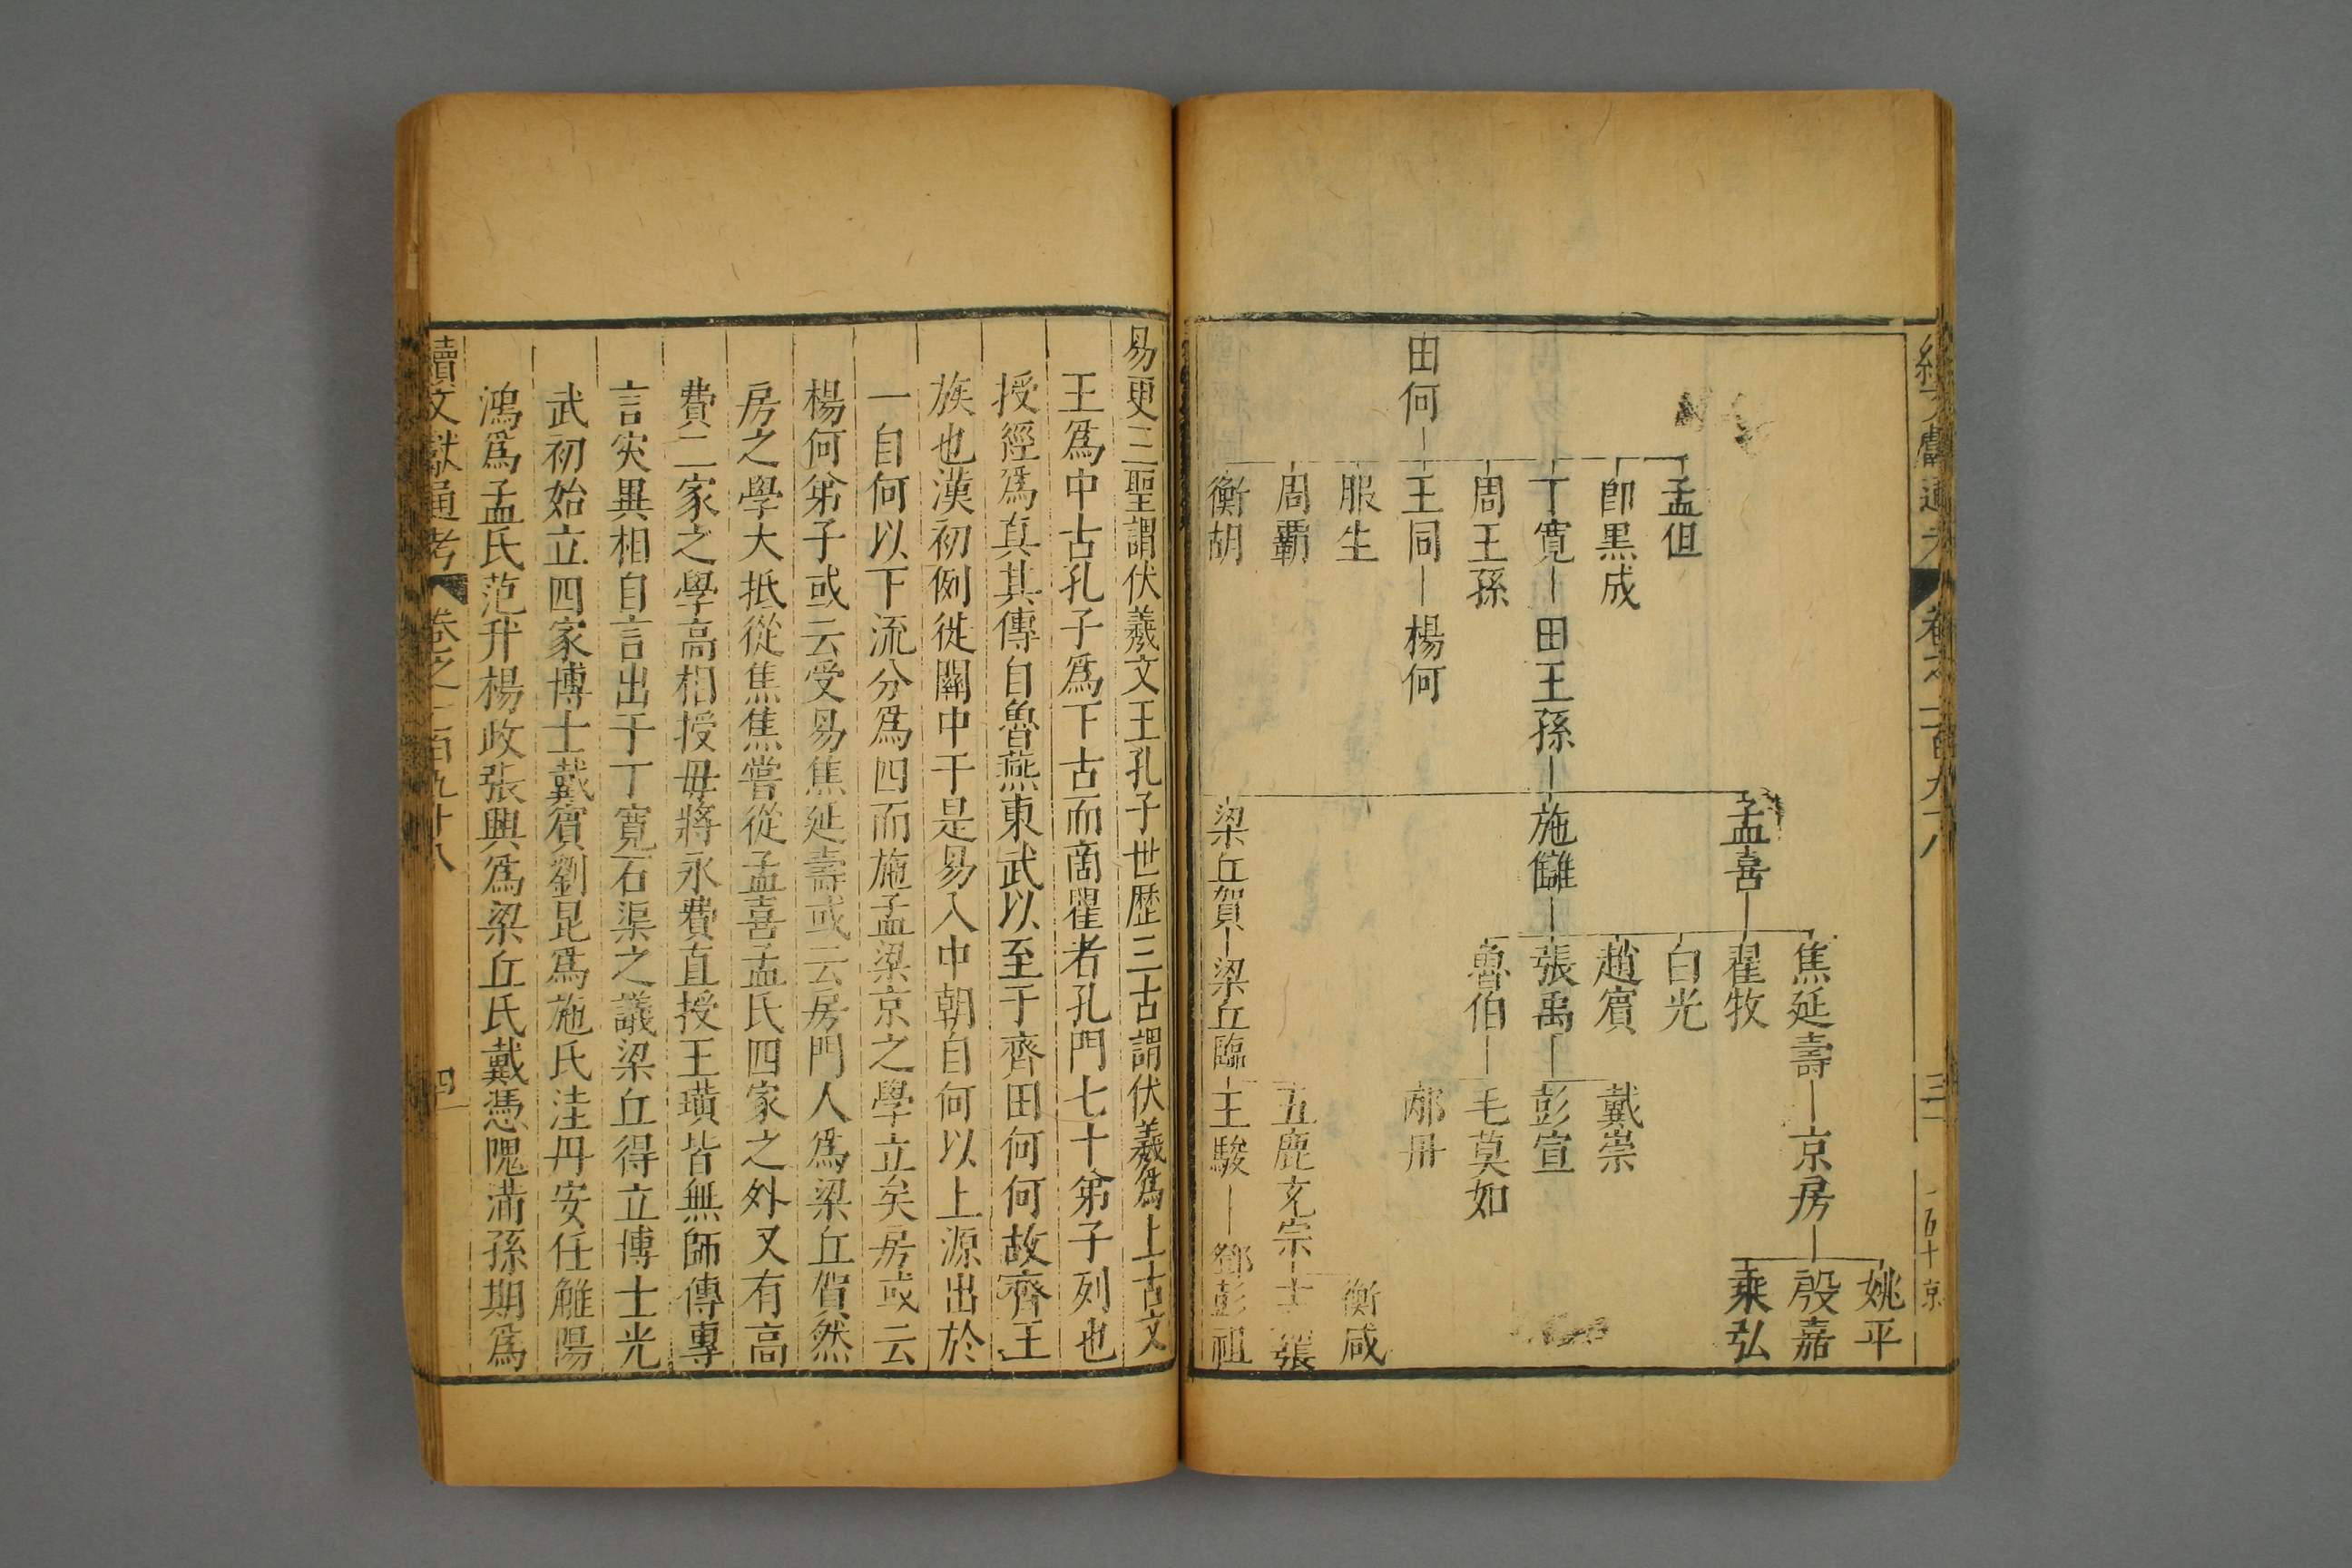 續文獻通考 卷之一百九十八 三
姚平
焦延壽 京房 殷嘉
孟喜 翟牧 乘弘
孟但 白光
即黑成 趙賓 戴崇
丁寛 田王孫 施讎 張禹 彭宣
周王孫 魯伯 毛莫如
田何 王同 楊何 邴丹
服生 衡咸
周霸 五鹿充宗 士張
衡胡 梁丘賀 梁丘臨 王駿 鄧彭祖
易更三聖謂伏羲文王孔子世歴三古謂伏羲爲上古文
王爲中古孔子爲下古而商瞿者孔門七十弟子列也
授經爲真其傳自魯燕東武以至于齊田何何故齊王
族也漢初例徙關中于是易入中朝自何以上源出於
一自何以下流分爲四而施孟梁京之學立矣房或云
楊何弟子或云受易焦延壽或云房門人爲梁丘賀然
房之學大抵從焦焦嘗從孟喜孟氏四家之外又有高
費二家之學高相授毋將永費直授王璜皆無師傳專
言灾異相自言出于丁寛石渠之議梁丘得立博士光
武初始立四家博士戴賓劉昆爲施氏洼丹安任觟陽
鴻爲孟氏范升楊政張興爲梁丘氏戴憑隗滿孫期爲
續文獻通考 卷之一百九十八 四